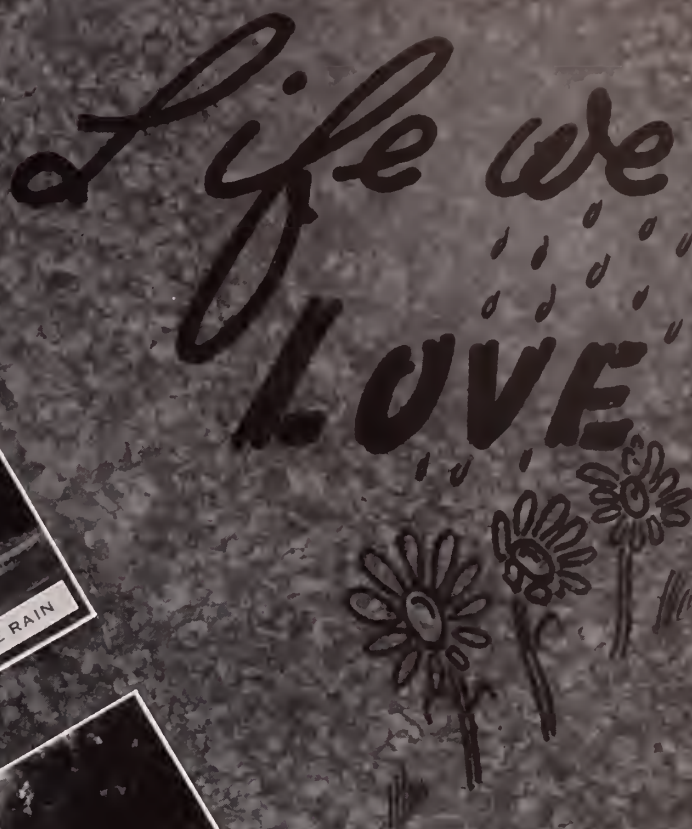 Life we
LOVE
RAIN